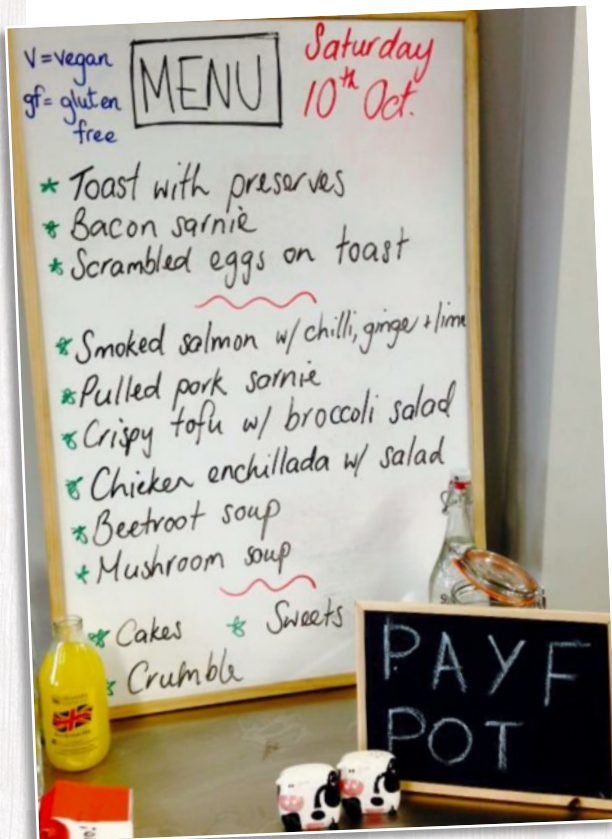 V=vegan
gf=gluten
free
MENU
Saturday
10th Oct.
* Toast with preserves
* Bacon sarnie
* Scrambled eggs on toast
* Smoked salmon w/ chilli, ginger + lime
* Pulled pork sarnie
* Crispy tofu w/ broccoli salad
* Chicken enchillada w/ salad
* Beetroot soup
* Mushroom soup
* Cakes * Sweets
* Crumble
PAYF
POT